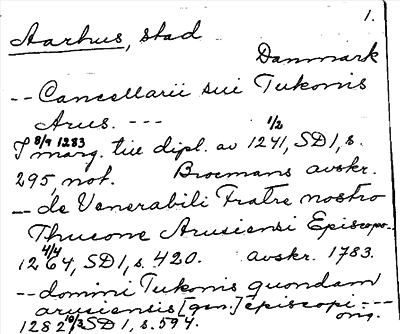 1.
Aarhus, stad
Danmark
-- Cancellarii sui Tukonis
Arus. ---
8/9 1283 1/2
I marg. till dipl. av 1241, SD1, s.
295, not. Brocmans avskr.
-- de Venerabili Fratre nostro
Thucone Arusiensi Episcopo--
4/4
1264, SD1, s. 420. avskr. 1783.
-- domini Tukonis quondam
arusiensis [gen.] episcopi ---
1282 10/3 SD1, s. 594. orig.